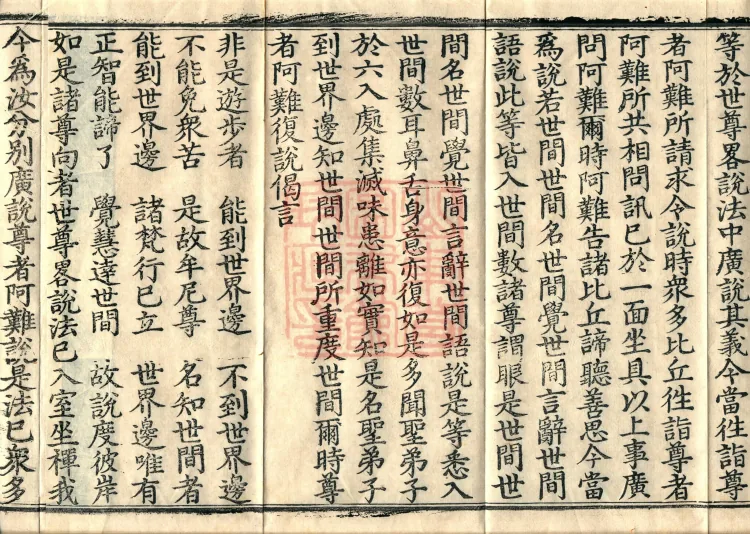 等於世尊畧說法中廣說其義今當往詣尊
者阿難所請求令說時衆多比丘往詣尊者
阿難所共相問訊已於一面坐具以上事廣
問阿難爾時阿難告諸比丘諦聽善思今當
爲說若世間世間名世間覺世間言辭世間
語說此等皆入世間數諸尊謂眼是世間世
間名世間覺世間言辭世間語說是等悉入
世間數耳鼻舌身意亦復如是多聞聖弟子
於六入處集滅味患離如實知是名聖弟子
到世界邊知世間世間所重度世間爾時尊
者阿難復說偈言
非是遊步者 能到世界邊 不到世界邊
不能免衆苦 是故牟尼尊 名知世間者
能到世界邊 諸梵行已立 世界邊唯有
正智能諦了 覺慧達世間 故說度彼岸
如是諸尊向者世尊畧說法已入室坐禪我
今爲汝分別廣說尊者阿難說是法已衆多